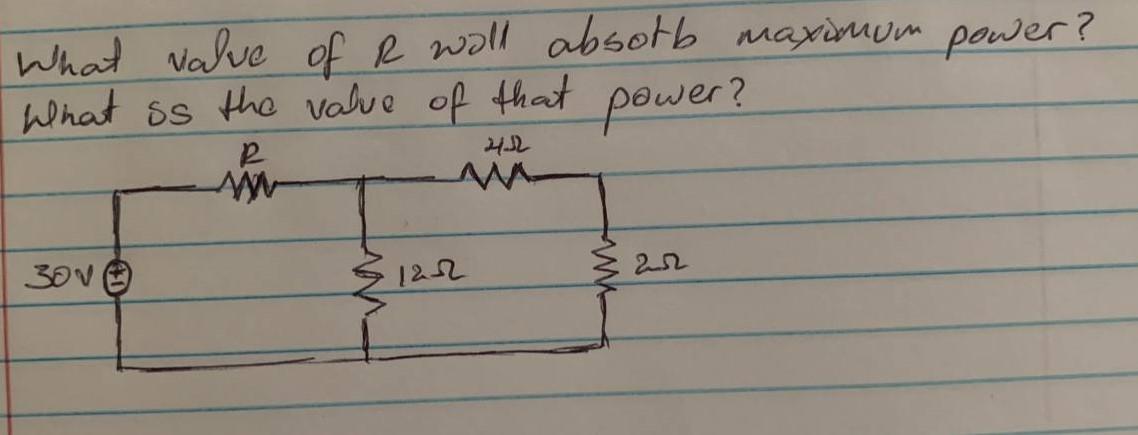 What value of R will absorb maximum power?
What is the value of that power?
R
4Ω
30V
12Ω
2Ω